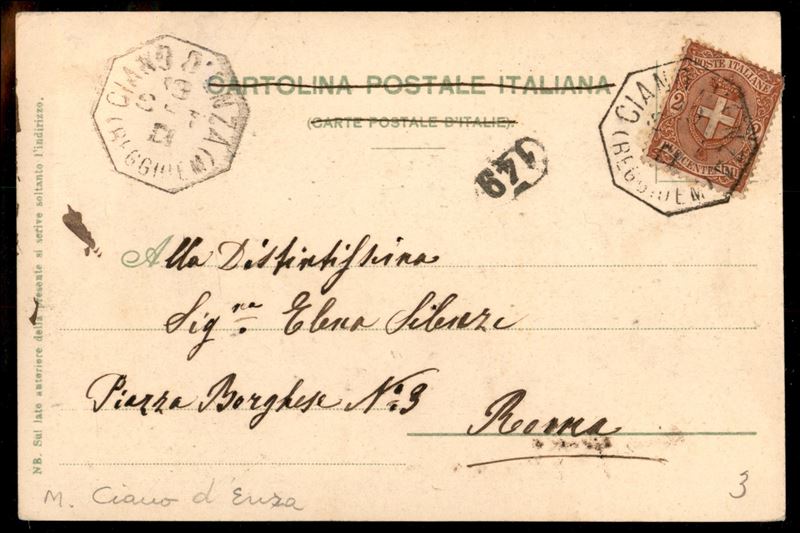 CIANO D'ENZA
(REGGIO EM.)
CARTOLINA POSTALE ITALIANA
(CARTE POSTALE D'ITALIE).
POSTE ITALIANE
2 2
CIANO
(REGGIO EM
149
Alla Distintissima
Sig.na Elena Silenzi
Piazza Borghese No. 3
Roma
NB. Sul lato anteriore della presente si scrive soltanto l'indirizzo.
M. Ciano d'Enza
3